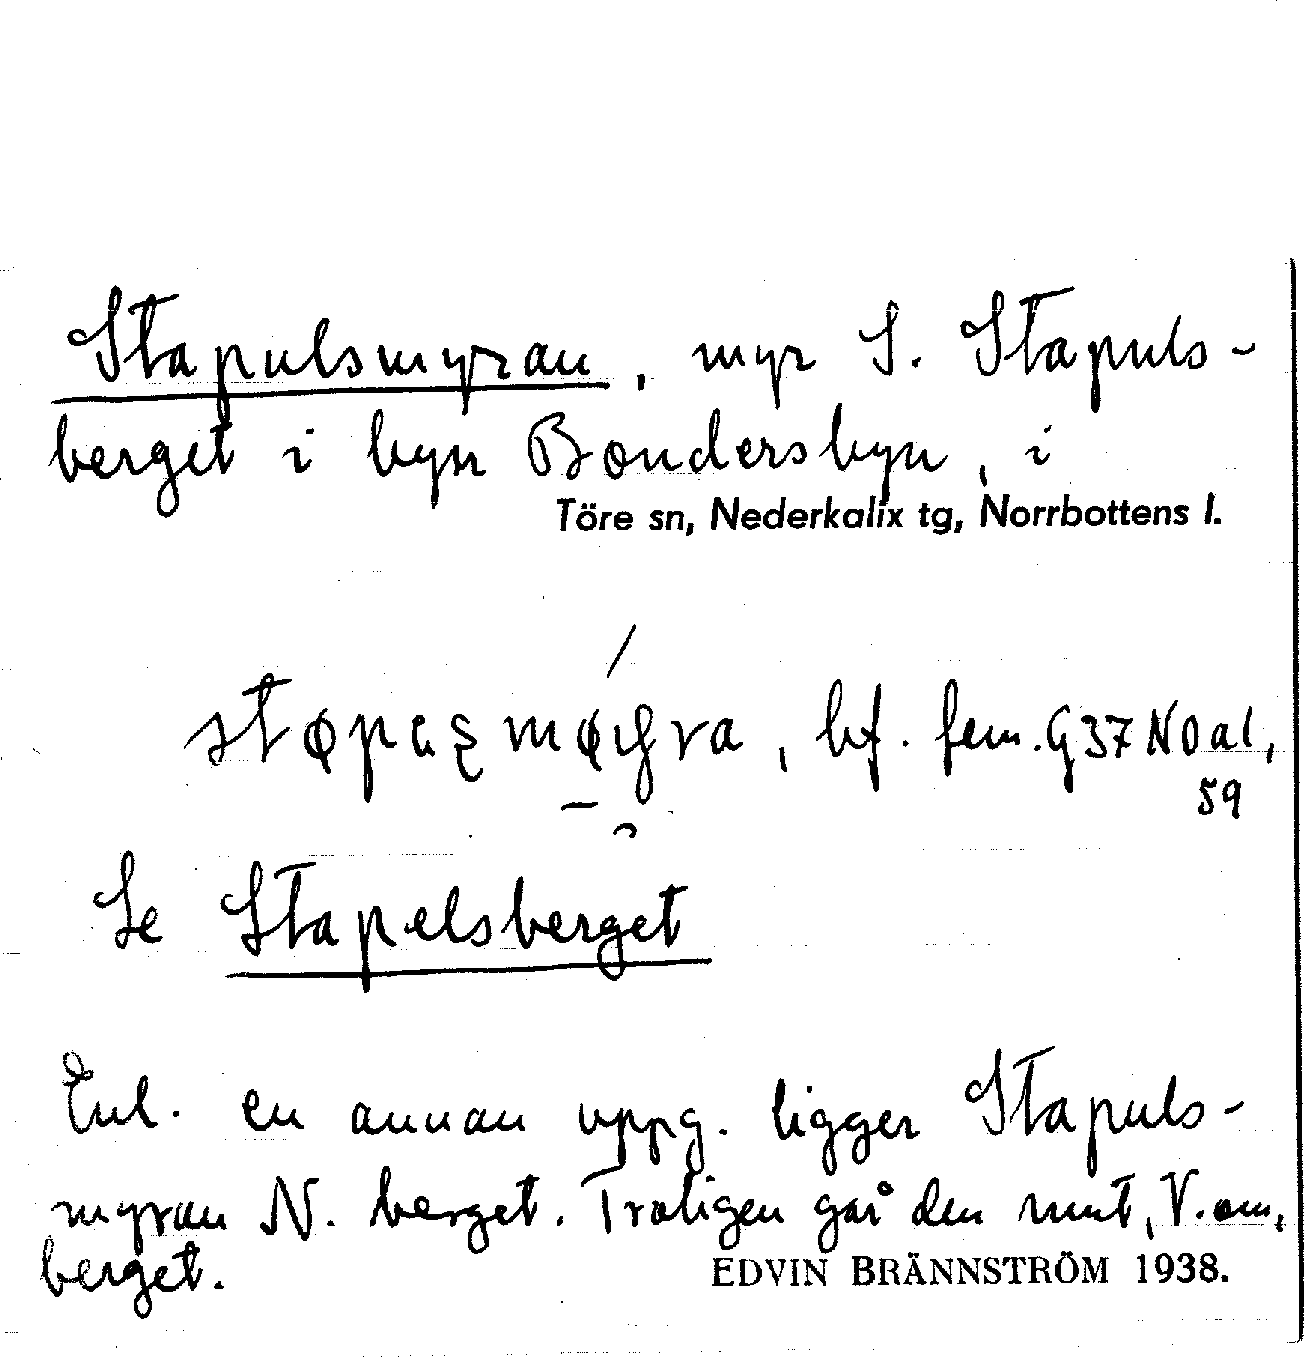 Stapulsmyran, myr S. Stapuls-
berget i byn Bondersbyn, i
Töre sn, Nederkalix tg, Norrbottens l.
bf. fem. G37 NO a1,
59
Se Stapelsberget
Enl. en annan uppg. ligger Stapuls-
myran N. berget. Troligen går den runt, V. om,
berget.
EDVIN BRÄNNSTRÖM 1938.